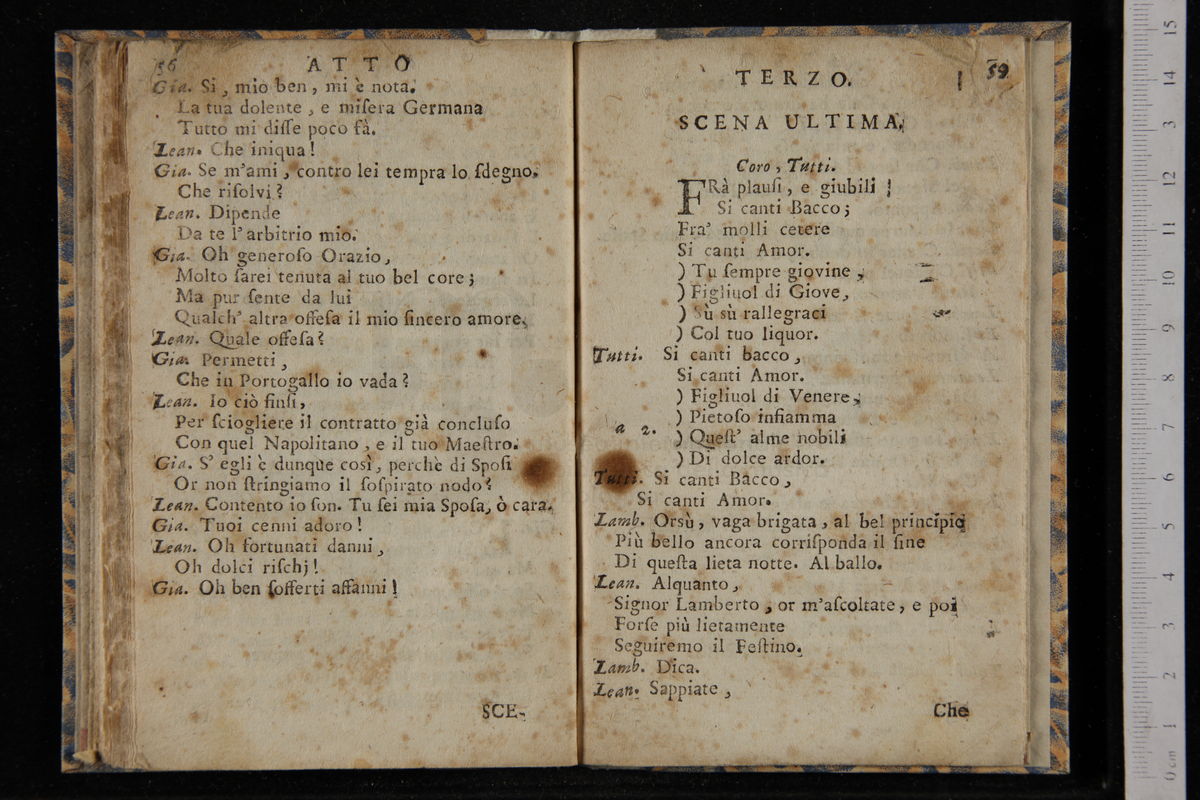 56
ATTO
Gia. Si, mio ben, mi è nota.
La tua dolente, e miſera Germana
Tutto mi diſſe poco fà.
Lean. Che iniqua!
Gia. Se m'ami, contro lei tempra lo ſdegno.
Che riſolvi?
Lean. Dipende
Da te l'arbitrio mio.
Gia. Oh generoſo Orazio,
Molto ſarei tenuta al tuo bel core;
Ma pur ſente da lui
Qualch' altra offeſa il mio ſincero amore.
Lean. Quale offeſa?
Gia. Permetti,
Che in Portogallo io vada?
Lean. Io ciò finſi,
Per ſciogliere il contratto già concluſo
Con quel Napolitano, e il tuo Maeſtro.
Gia. S' egli è dunque così, perchè di Spoſi
Or non ſtringiamo il ſoſpirato nodo?
Lean. Contento io ſon. Tu ſei mia Spoſa, ò cara.
Gia. Tuoi cenni adoro!
Lean. Oh fortunati danni,
Oh dolci riſchj!
Gia. Oh ben ſofferti affanni!
SCE-
TERZO.
59
SCENA ULTIMA.
Coro, Tutti.
FRà plauſi, e giubili!
Si canti Bacco;
Fra' molli cetere
Si canti Amor.
) Tu ſempre giovine,
) Figliuol di Giove,
) Sù sù rallegraci
) Col tuo liquor.
Tutti. Si canti bacco,
Si canti Amor.
) Figliuol di Venere,
) Pietoſo infiamma
a 2. ) Queſt' alme nobili
) Di dolce ardor.
Tutti. Si canti Bacco,
Si canti Amor.
Lamb. Orsù, vaga brigata, al bel principio
Più bello ancora corriſponda il fine
Di queſta lieta notte. Al ballo.
Lean. Alquanto,
Signor Lamberto, or m'aſcoltate, e poi
Forſe più lietamente
Seguiremo il Feſtino.
Lamb. Dica.
Lean. Sappiate,
Che
15
14
3
12
11
10
9
8
7
6
5
4
3
2
1
0 cm